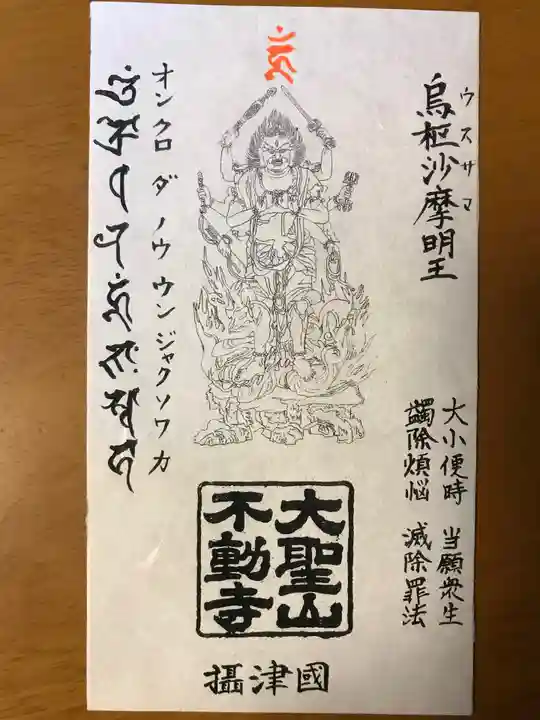 ウスサマ
烏枢沙摩明王
大小便時 当願衆生
蠲除煩悩 滅除罪法
オン クロ ダ ノウ ウン ジャク ソワ カ
大聖山
不動寺
攝津國